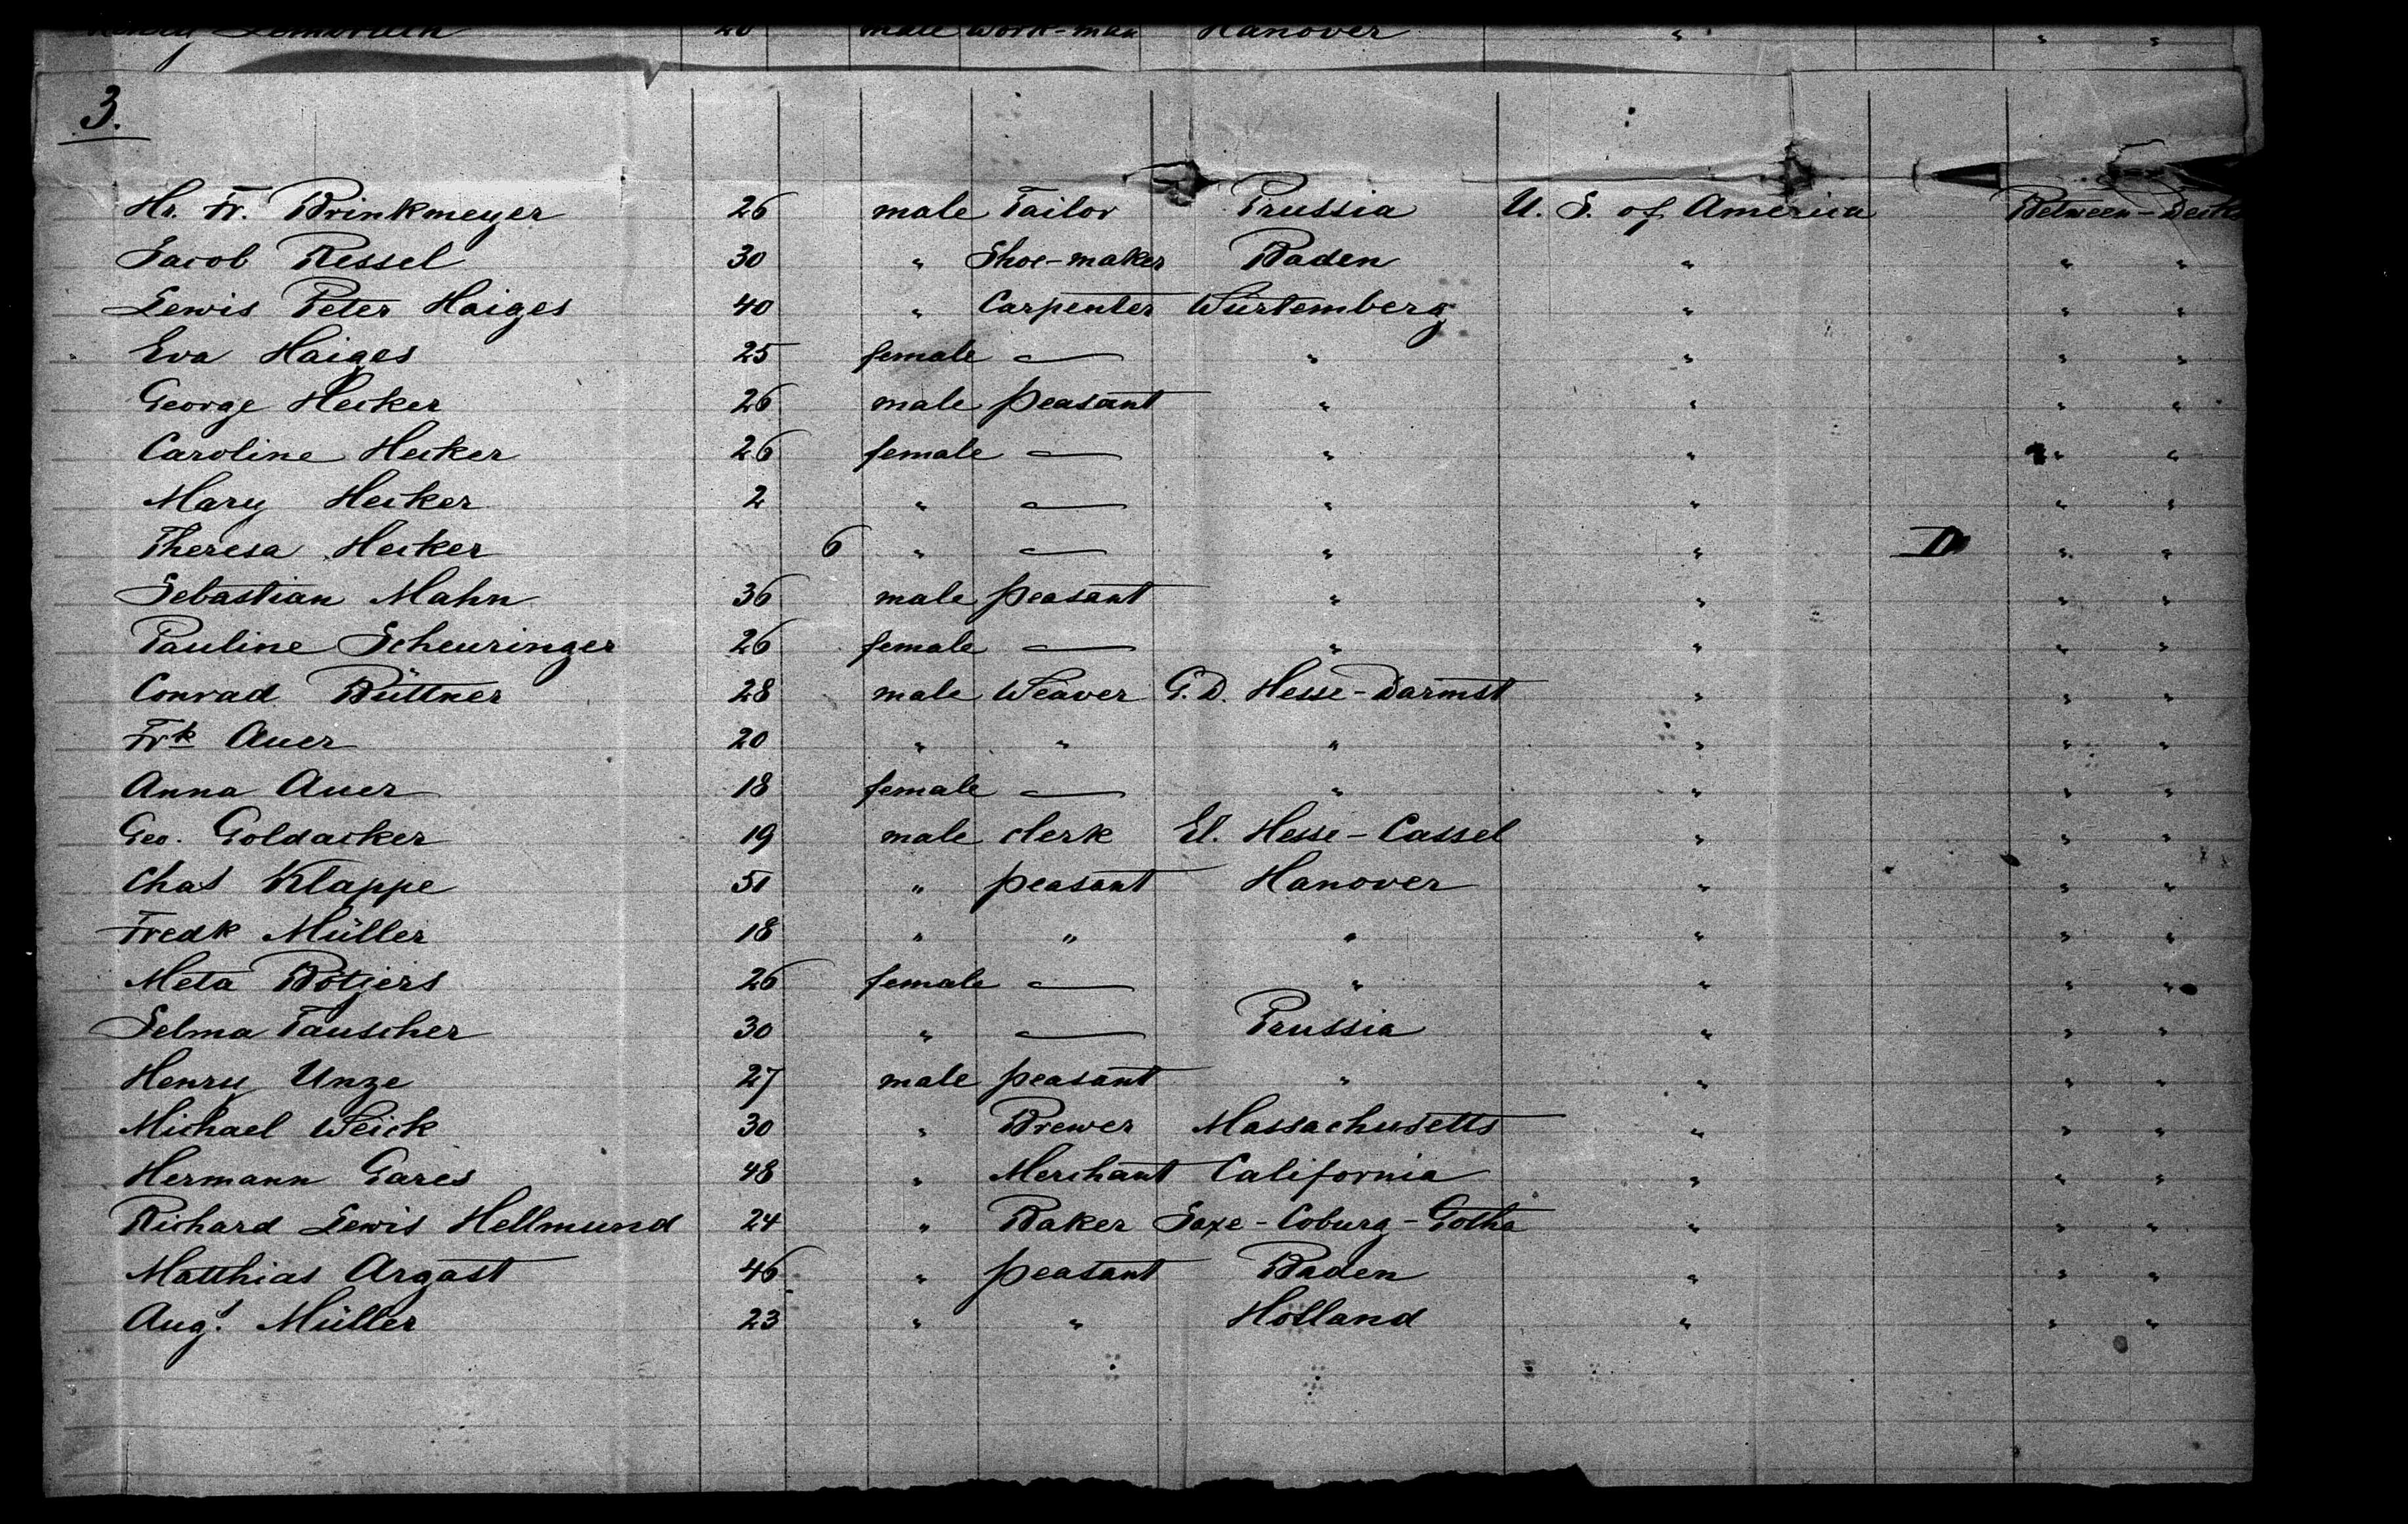 20 male Work-man Hanover " " "
3.
Hr. Fr. Brinkmeyer 26 male Tailor Prussia U. S. of America Between-Decks
Jacob Ressel 30 " Shoe-maker Baden " " "
Lewis Peter Haiges 40 " Carpenter Würtemberg " " "
Eva Haiges 25 female — " " " "
George Hecker 26 male peasant " " " "
Caroline Hecker 26 female — " " " "
Mary Hecker 2 " — " " " "
Theresa Hecker 6 " — " " D " "
Sebastian Mahn 36 male peasant " " " "
Pauline Scheuringer 26 female — " " " "
Conrad Büttner 28 male Weaver G. D. Hesse-Darmst " " "
Frk Auer 20 " " " " " "
Anna Auer 18 female — " " " "
Geo. Goldacker 19 male clerk El. Hesse-Cassel " " "
Chas Klappe 51 " peasant Hanover " " "
Fredk Müller 18 " " " " " "
Meta Bötjers 26 female — " " " "
Selma Tauscher 30 " — Prussia " " "
Henry Unze 27 male peasant " " " "
Michael Weick 30 " Brewer Massachusetts " " "
Hermann Gares 48 " Merchant California " " "
Richard Lewis Hellmund 24 " Baker Saxe-Coburg-Gotha " " "
Matthias Argast 46 " peasant Baden " " "
Augt. Müller 23 " " Holland " " "